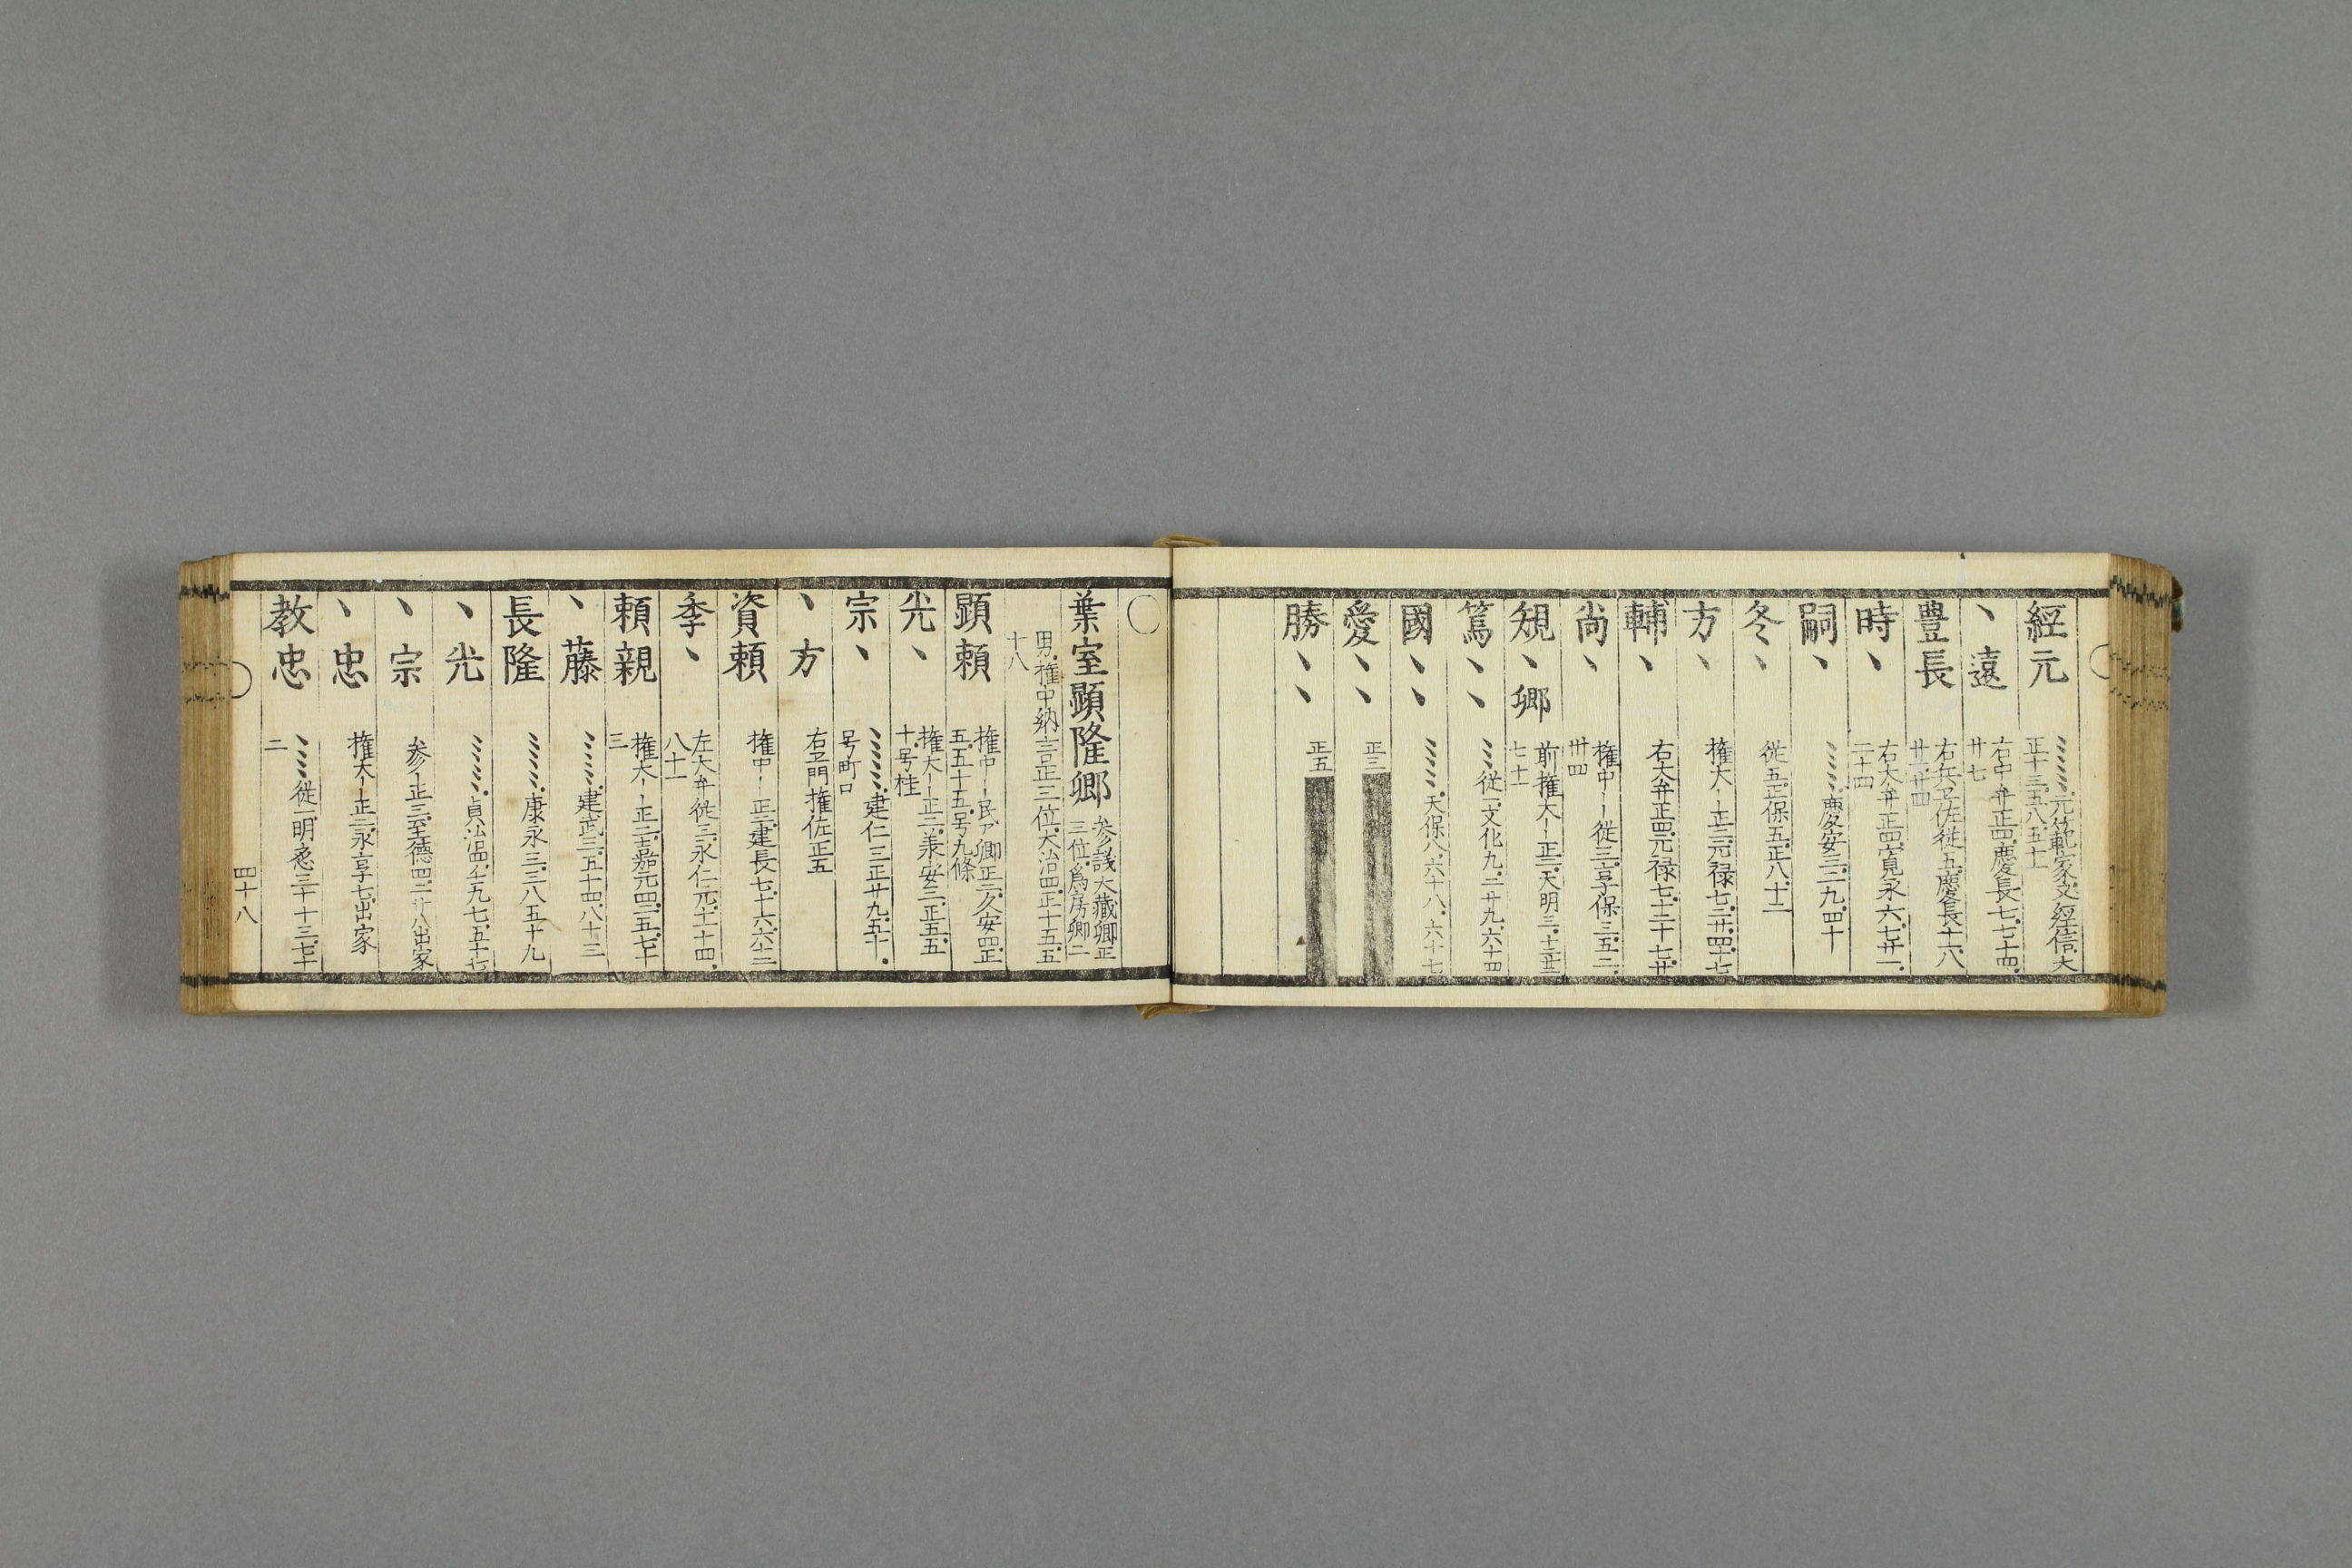 經元 〻〻〻元範家文經信大
正十三五八五十一
丶遠 右中弁正四慶長七七十四
廿七
豊長 右兵衛佐従五慶長十一八
廿一廿四
時丶 右大弁正四寛永六七廿一
二十四
嗣丶 〻〻〻慶安三二九四十
冬丶 従五正保五正八十二
方丶 権大丨正三元禄七二廿四十七
輔丶 右大弁正四元禄七十二十七廿
尚丶 権中丨従三享保三五二
卅四
䂓丶卿 前権大丨正二天明三十二廿三
七十一
篤丶丶 〻〻従一文化九二廿九六十四
國丶丶 〻〻〻天保八六十八六十七
愛丶丶 正三
勝丶丶 正五
葉室顕隆卿 参議大藏卿正
三位爲房卿二
男権中納言正三位大治四正十五五
十八
顕頼 権中丨民ア卿正二久安四正
五五十五号九條
光丶 権大丨正二兼安三正五五
十号桂
宗丶 〻〻〻建仁三正廿九五十
号町口
丶方 右衛門権佐正五
資頼 権中丨正二建長七十六六十二
季丶 左大弁従三永仁元十一十四
八十一
頼親 権大丨正二嘉元四二五七十
三
丶藤 〻〻〻建武三五十四八十三
長隆 〻〻〻康永三三八五十九
丶光 〻〻〻貞治四九七五十七
丶宗 参丨正三至徳四二廿八出家
丶忠 権大丨正二永享七出家
教忠 〻〻〻従一明應三十十三七十
二
四十八